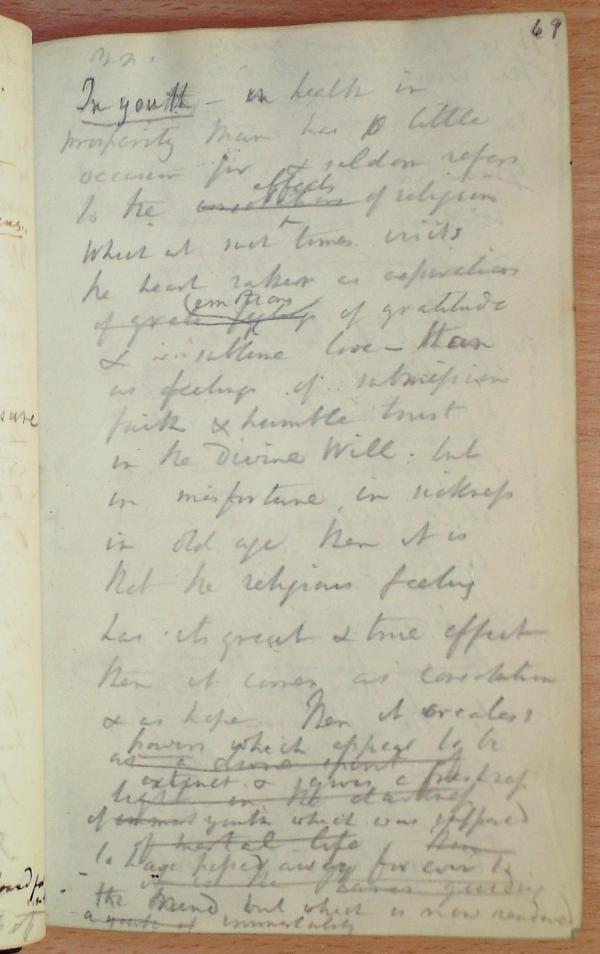 69
In youth – in health in
prosperity Man has little
occasion for & seldom refers
to the effects of religion
What at such times visits
the heart rather as aspirations
of grate feelings emotions of gratitude
& sublime love – than
as feelings of submission
faith & humble trust
in the Divine Will. but
in misfortune, in sickness
in old age then it is
that the religious feeling
has its great & true effect
then it comes as consolation
& as hope. Then it creates
powers which appear to be
as a divine spirit
extinct & gives a freshness
light in the darkness
of youth which was supposed
of mortal life
to have passed away for ever to
is the guiding
the Mind but which is now rendered
of immortality